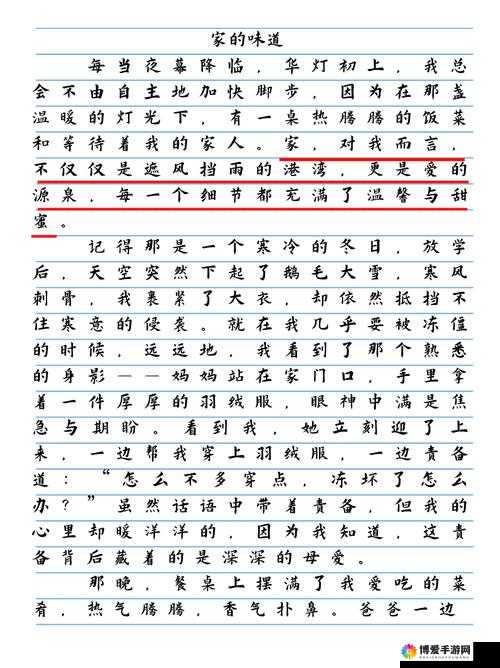 家的味道
每当夜幕降临，华灯初上，我总
会不由自主地加快脚步，因为在那盏
温暖的灯光下，有一桌热腾腾的饭菜
和等待着我的家人。家，对我而言，
不仅仅是遮风挡雨的港湾，更是爱的
源泉，每一个细节都充满了温馨与甜
蜜。
记得那是一个寒冷的冬日，放学
后，天空突然下起了鹅毛大雪，寒风
刺骨，我裹紧了大衣，却依然抵挡不
住寒意的侵袭。就在我几乎要被冻僵
的时候，远远地，我看到了那个熟悉
的身影——妈妈站在家门口，手里拿
着一件厚厚的羽绒服，眼神中满是焦
急与期盼。看到我，她立刻迎了上
来，一边帮我穿上羽绒服，一边责备
道：“怎么不多穿点，冻坏了怎么
办？”虽然话语中带着责备，但我的
心里却暖洋洋的，因为我知道，这责
备背后藏着的是深深的母爱。
那晚，餐桌上摆满了我爱吃的菜
肴，热气腾腾，香气扑鼻。爸爸一边
博爱手游网